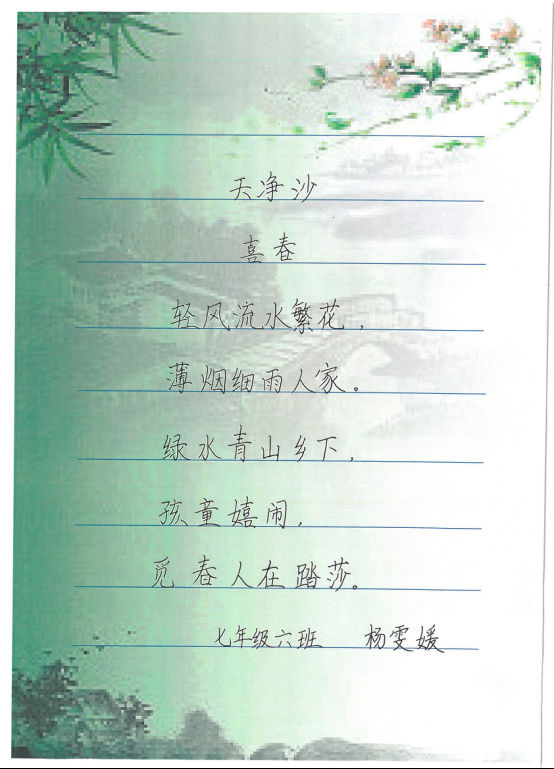 天净沙
喜春
轻风流水繁花，
薄烟细雨人家。
绿水青山乡下，
孩童嬉闹，
觅春人在踏莎。
七年级六班 杨雯媛